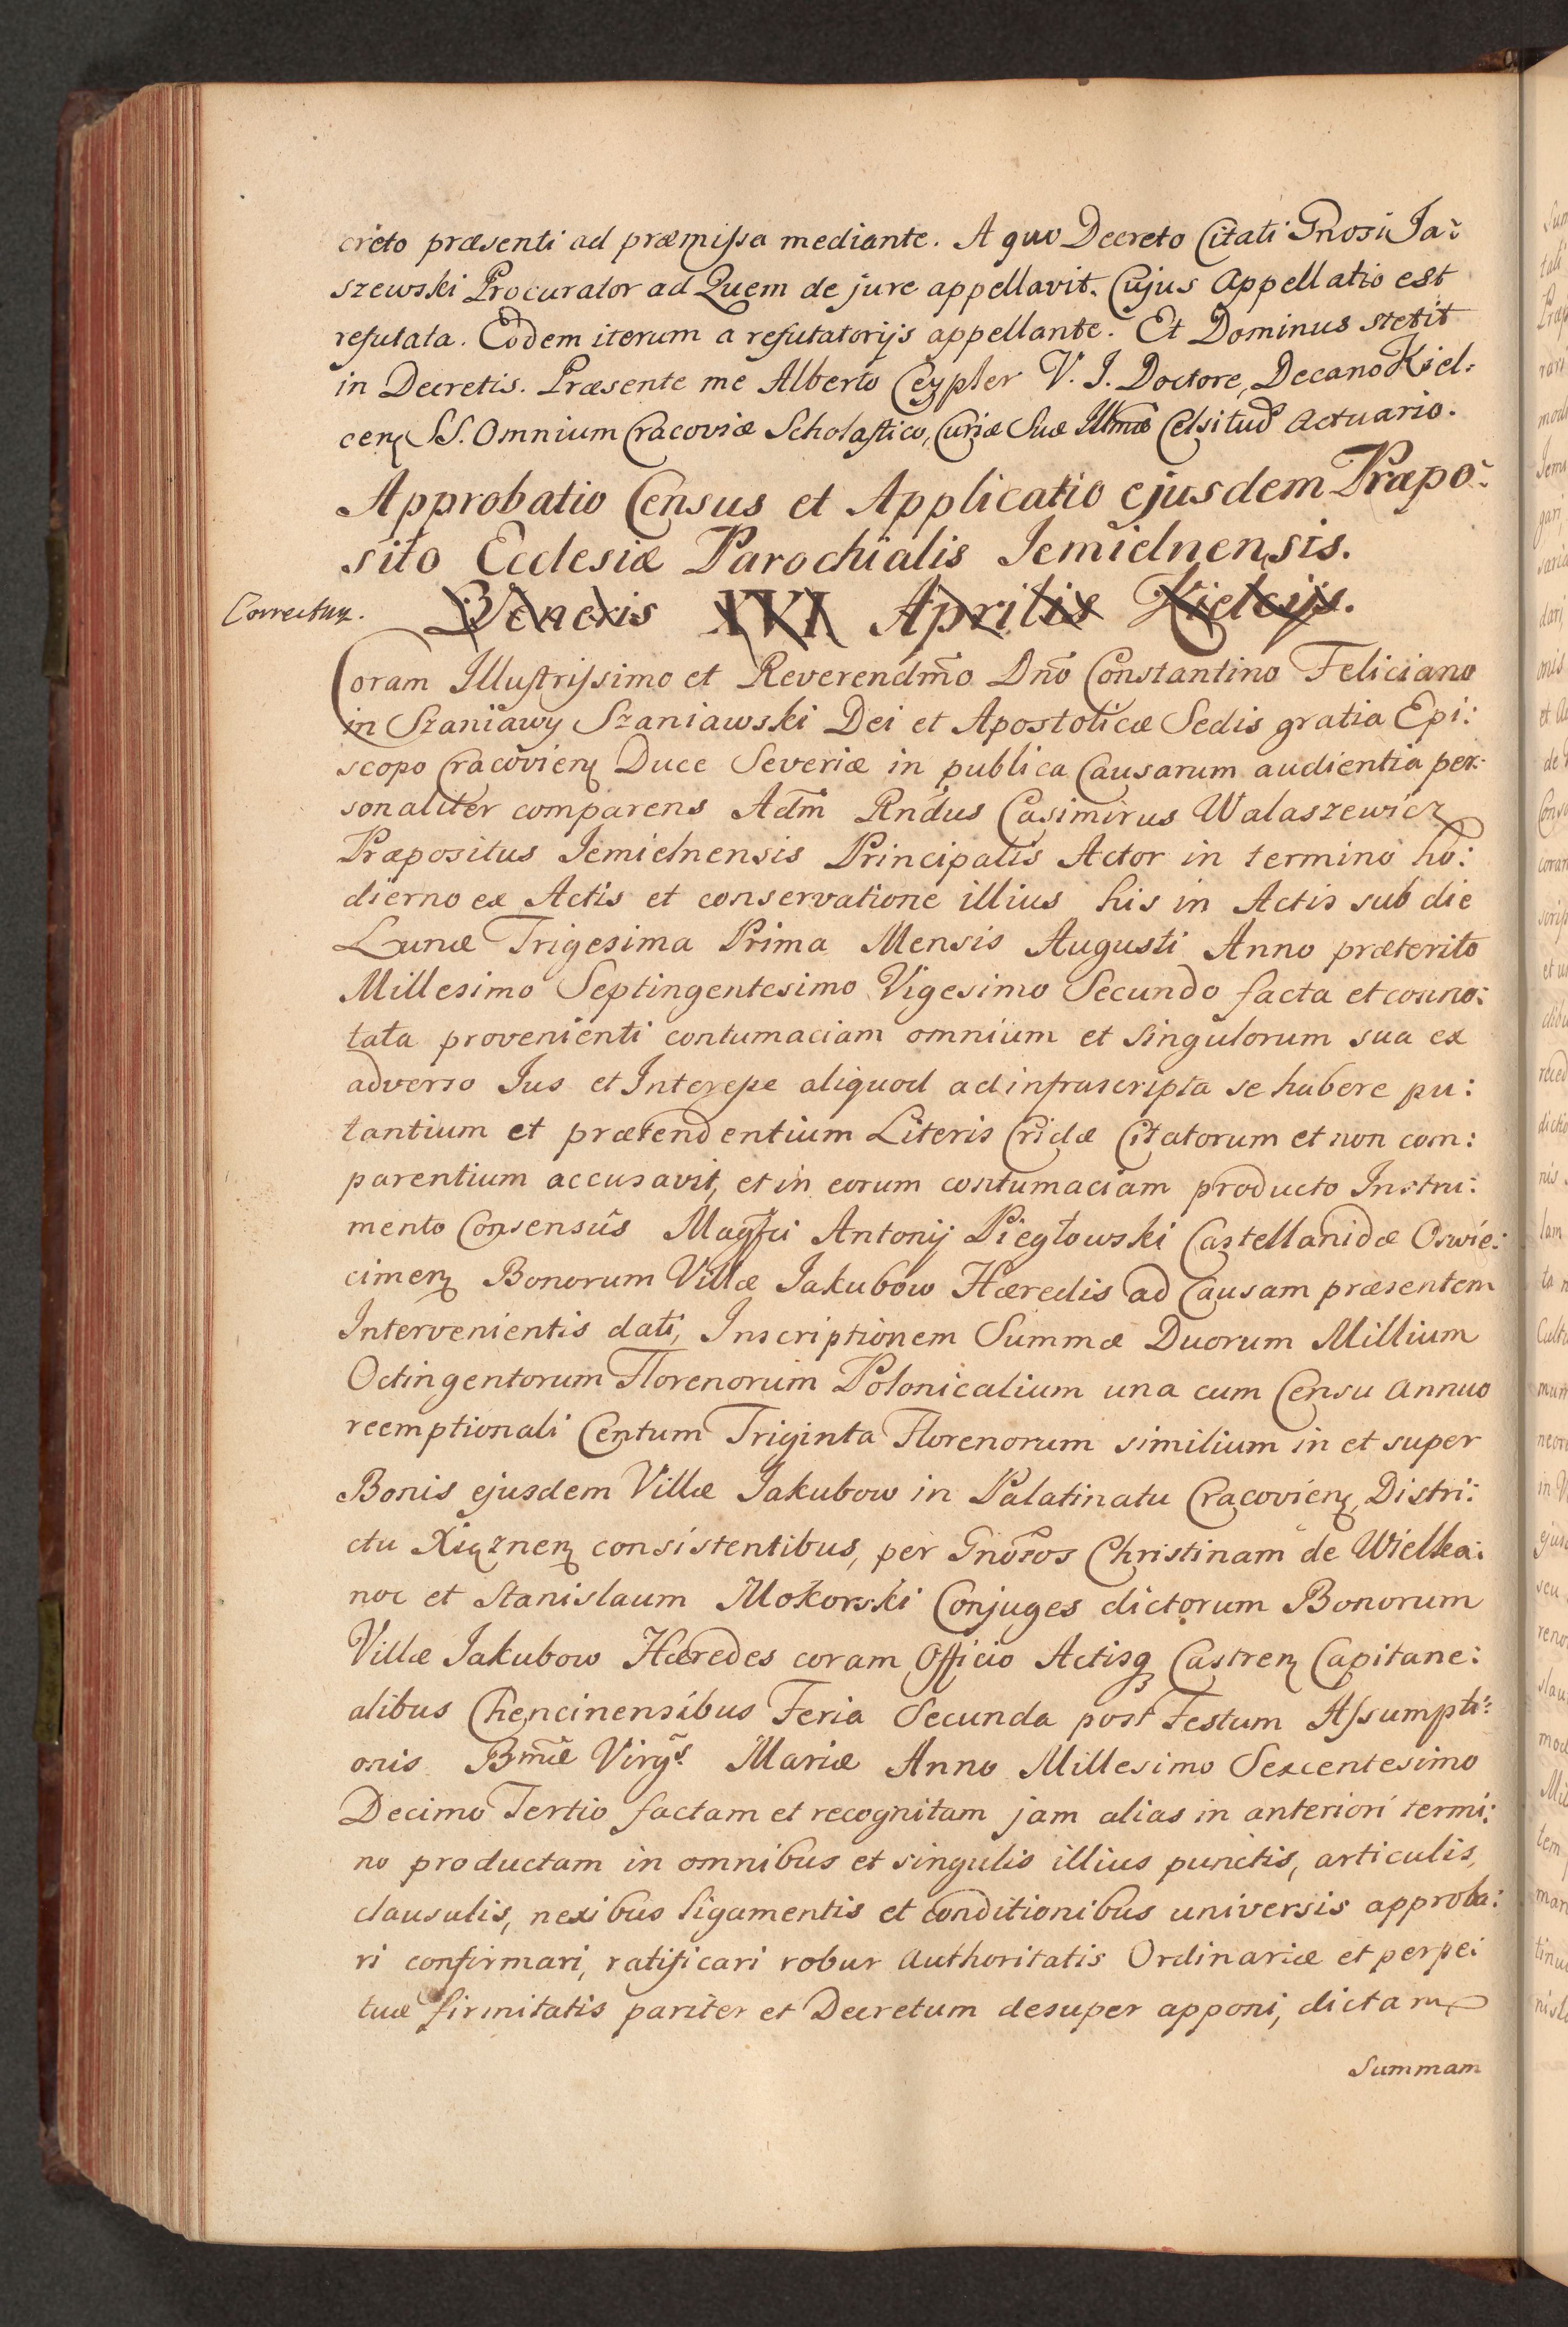 creto præsenti ad præmissa mediante. A quo Decreto Citati Gnosi Ja:
szewski Procurator ad Quem de jure appellavit. Cujus Appellatio est
refutata. Eodem iterum a refutatorijs appellante. Et Dominus stetit
in Decretis. Præsente me Alberto Ceypler V. J. Doctore, Decano Kiel:
cen̄ SS. Omnium Cracoviæ Scholastico, Curiæ Suæ Illmæ Celsitud̄ Actuario.
Approbatio Census et Applicatio ejusdem Præpo:
sito Ecclesiæ Parochialis Jemielnensis.
Correctum. Veneris XVI Aprilis Kielcijs.
Coram Illustrissimo et Reverendm̄o Dn̄o Constantino Feliciano
in Szaniawy Szaniawski Dei et Apostolicæ Sedis gratia Epi:
scopo Cracovien̄ Duce Severiæ in publica Causarum audientia per:
sonaliter comparens Adm̄ Rndus Casimirus Walaszewicz
Præpositus Jemielnensis Principalis Actor in termino ho:
dierno ex Actis et conservatione illius his in Actis sub die
Lunæ Trigesima Prima Mensis Augusti Anno præterito
Millesimo Septingentesimo Vigesimo Secundo facta et conno:
tata provenienti contumaciam omnium et singulorum sua ex
adverso Jus et Interesse aliquod ad infrascripta se habere pu:
tantium et prætendentium Literis Cridæ Citatorum et non com:
parentium accusavit, et in eorum contumaciam producto Instru:
mento Consensûs Magfci Antonij Piegłowski Castellanidæ Oswie:
cimen̄ Bonorum Villæ Jakubow Hæredis ad Causam præsentem
Intervenientis dati, Inscriptionem Summæ Duorum Millium
Octingentorum Florenorum Polonicalium una cum Censu Annuo
reemptionali Centum Triginta Florenorum similium in et super
Bonis ejusdem Villæ Jakubow in Palatinatu Cracovien̄, Distri:
ctu Xiążnen̄ consistentibus, per Gnōsos Christinam de Wielka:
noc et Stanislaum Mokorski Conjuges dictorum Bonorum
Villæ Jakubow Hæredes coram Officio Actisq Castren̄ Capitane:
alibus Chencinensibus Feria Secunda post Festum Assumpti:
onis Bmæ Virgs Mariæ Anno Millesimo Sexcentesimo
Decimo Tertio factam et recognitam jam alias in anteriori termi:
no productam in omnibus et singulis illius punctis, articulis,
clausulis, nexibus ligamentis et conditionibus universis approba:
ri confirmari, ratificari robur Authoritatis Ordinariæ et perpe:
tuæ firmitatis pariter et Decretum desuper apponi, dictam
Summam